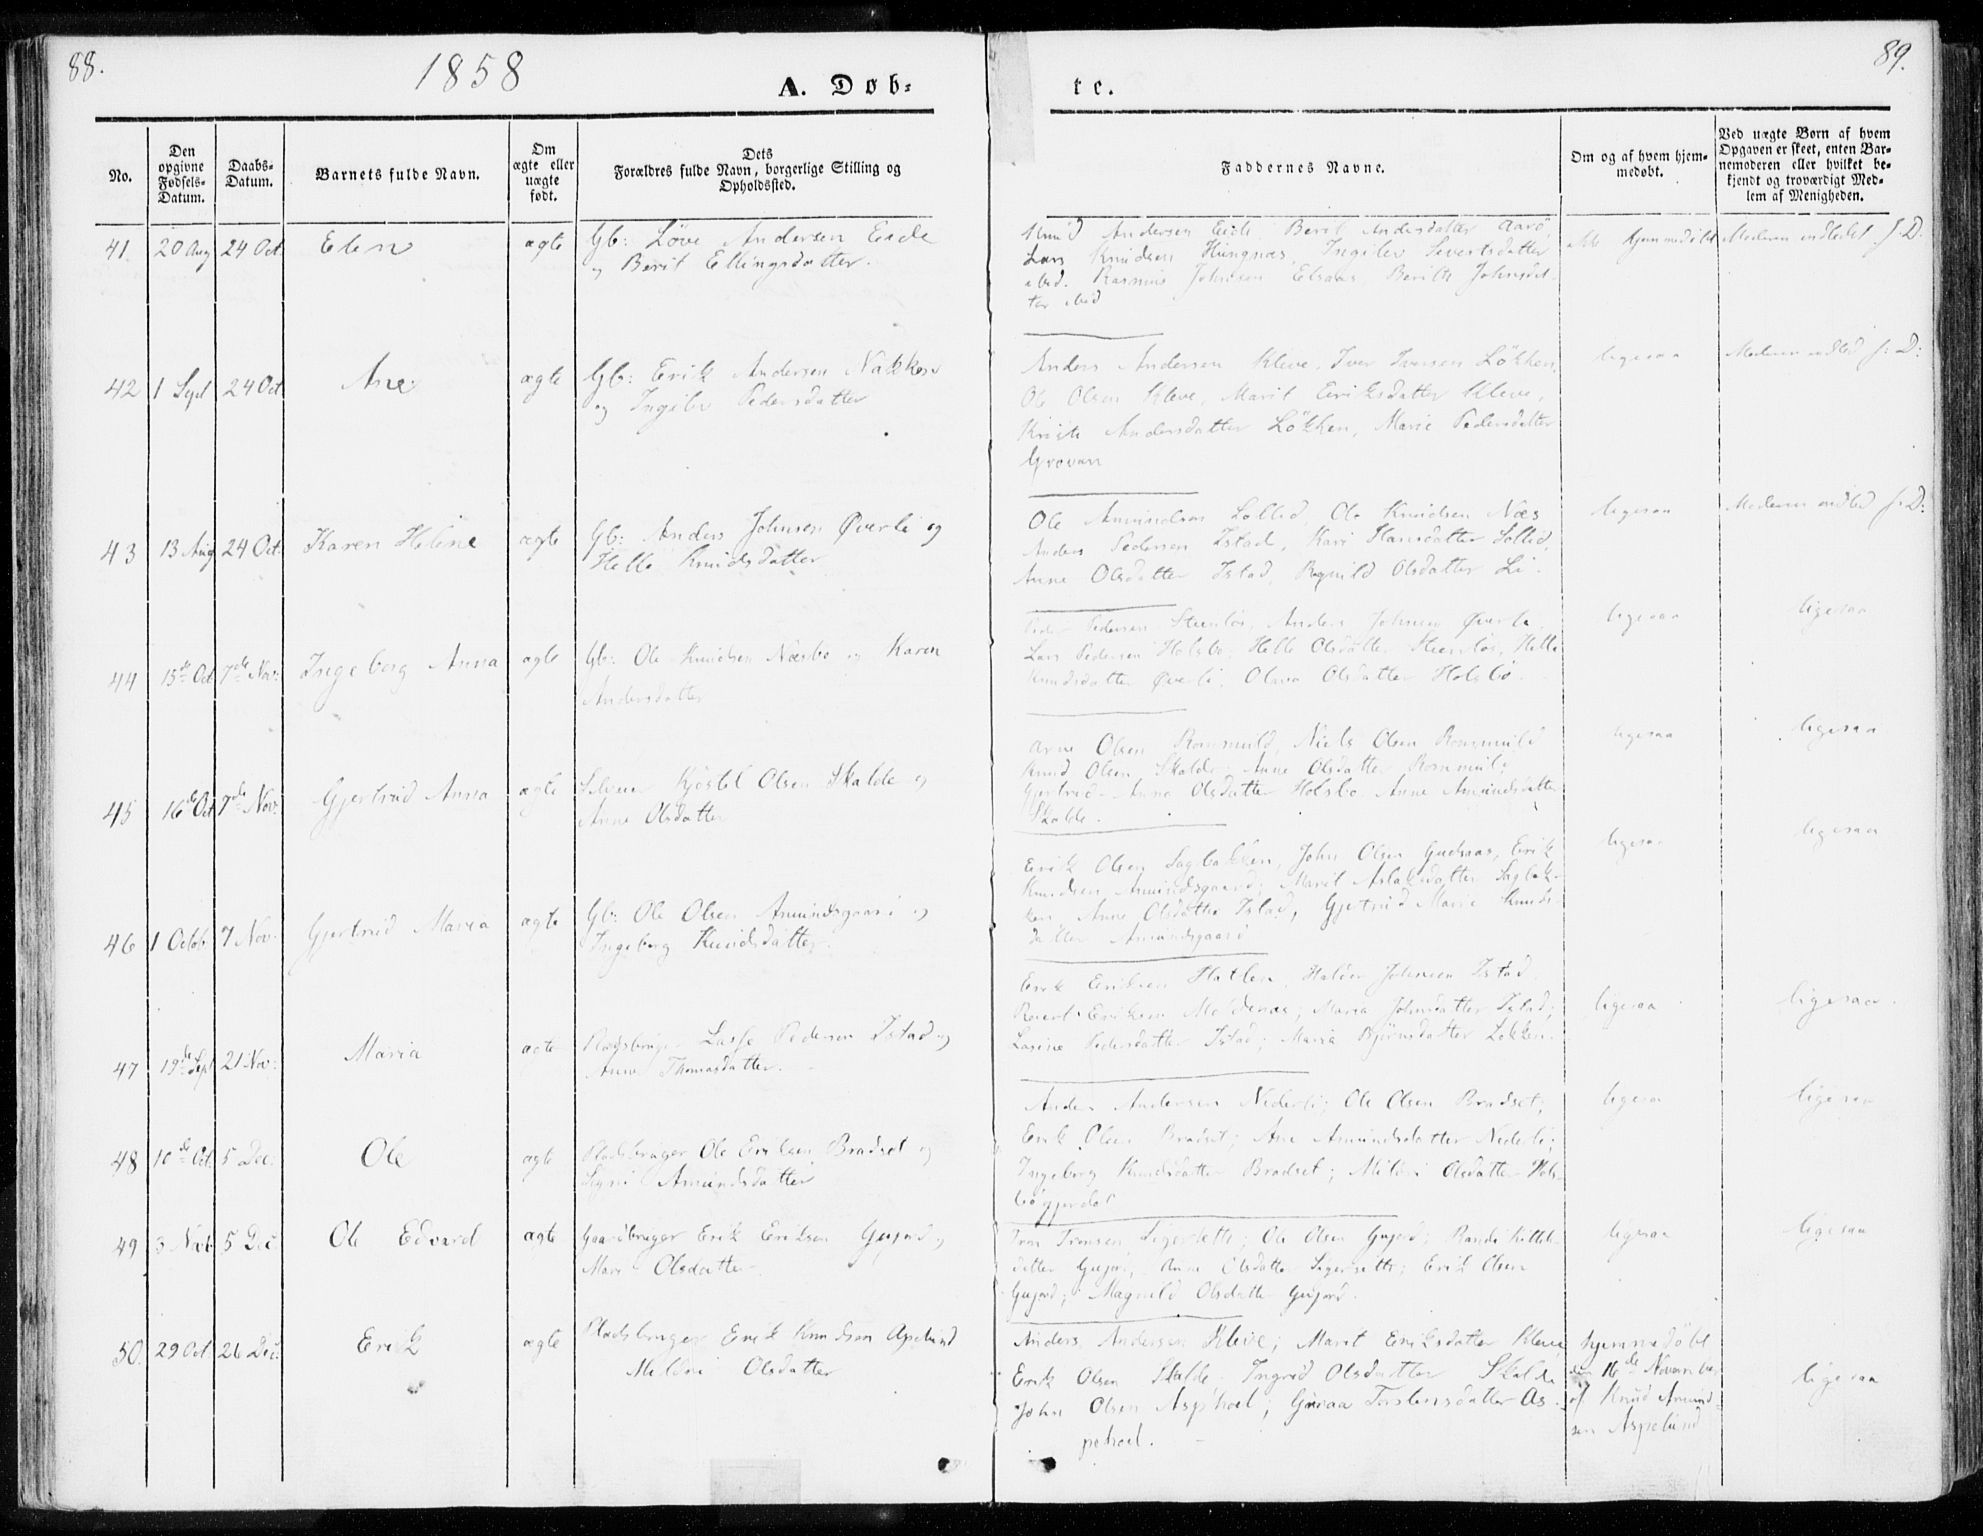 88.
1858
A. Døb-
te.
89.
No.
Den opgivne Fødsels-Datum.
Daabs-Datum.
Barnets fulde Navn.
Om ægte eller uægte født.
Dets Forældres fulde Navn, borgerlige Stilling og Opholdssted.
Faddernes Navne.
Om og af hvem hjem-medøbt.
Ved uægte Børn af hvem Opgaven er skeet, enten Bar-nemoderen eller hvilket be-kjendt og troværdigt Med-lem af Menigheden.
41 20 Aug 24 Oct. Elen ægte Gb: Löve Andersen Eide
og Berit Ellingsdatter.
Knud Andersen Eide Berit Andersdatter Aarö,
Lars Knudsen Hungnæs, Ingeber Sivertsdatter
ibid. Rasmus Johnsen Elsaas, Berithe Johnsdat-
ter ibid
ikke hjemmedöbt
Moderen indledet f: D:
42 1 Sept 24 Oct Ane ægte Gb: Erik Andersen Nakken
og Ingeber Pedersdatter
Anders Andersen Kleve, Iver Iversen Lökken,
Ole Olsen Kleve, Marit Eriksdatter Kleve,
Andersdatter Lökken, Marie Pedersdatter
Grovan
ligesaa
Moderen indled f: D:
43 13 Aug 24 Oct. Karen Heline ægte Gb: Anders Johnsen Øverli og
Helle Knudsdatter
Ole Amundsen Sollid, Ole Knudsen Næs
Anders Pedersen Istad, Kari Hansdatter Sollid,
Anne Olsdatter Istad, Ragnild Olsdatter Li.
ligesaa
Moderen indled f: D:
44 15de Oct 7de Nov: Ingeborg Anna ægte Gb: Ole Knudsen Næsbø og Karen
Andersdatter
Peder Pedersen Steenlös, Anders Johnsen Øverli,
Lars Pedersen Holsbö, Helle Olsdatter Steenlös, Helle
Knudsdatter Øverli, Olava Olsdatter Holsbö.
ligesaa
ligesaa
45 16de Oct 7de Nov: Gjertrud Anna ægte Kjöstel Olsen Skalde og
Anne Olsdatter
Arne Olsen Rommuld, Niels Olsen Rommuld
Knud Olsen Skalde, Anne Olsdatter
Gjertrud Anna Olsdatter Holsbö Anne Amundsdatter
Skalde.
ligesaa
ligesaa
46 1 Octob. 7 Nov. Gjertrud Maria ægte Gb: Ole Olsen Amundsgaard og
Ingeborg Knudsdatter.
Erik Olsen Sagbakken, John Olsen Gudnæs, Erik
Knudsen Amundsgaard; Marit Aslaksdatter Sagbak-
ken, Anne Olsdatter Istad, Gjertrud Marie Knuds-
datter Amundsgaard
ligesaa
ligesaa
47 19de Sept 21 Nov: Maria ægte Pladsbruger Lasse Pedersen Istad og
Anne Thomasdatter.
Erik Eriksen Hatlen, Haldor Johnsen Istad,
Eriksen Moldenæs; Maria Johnsdatter Istad;
Lasine Pedersdatter Istad; Maria Björnsdatter Lökken.
ligesaa
ligesaa.
48 10de Oct. 5 Dec. Ole ægte Pladsbruger Ole Eriksen Bradset og
Amundsdatter
Anders Andersen Nederli; Ole Olsen Bradset;
Erik Olsen Bradset; Ane Amundsdatter Nederli;
Ingeborg Knudsdatter Bradset; Mildri Olsdatter Hols-
bögjerdet
ligesaa
ligesaa
49 3 Nov 5 Dec. Ole Edvard ægte Gaardbruger Erik Eriksen Gujord og
Mari Olsdatter
Iversen Ole Olsen Gujord; Randi Kittels-
datter Gujord, Anne Olsdatter Erik Olsen
Gujord; Magnild Olsdatter Gujord.
ligesaa
ligesaa
50. 29 Oct. 26 Dec. Erik ægte Pladsbruger Erik Knudsen Aspelund
Mildri Olsdatter
Anders Andersen Kleve; Marit Eriksdatter Kleve
Erik Olsen Skalde Ingrid Olsdatter Skalde
John Olsen Asphoel; Guraa Torstensdatter As-
pehoel.
hjemmedöbt
den 16de Novembr
af Knud Amund-
sen Aspelund
ligesaa